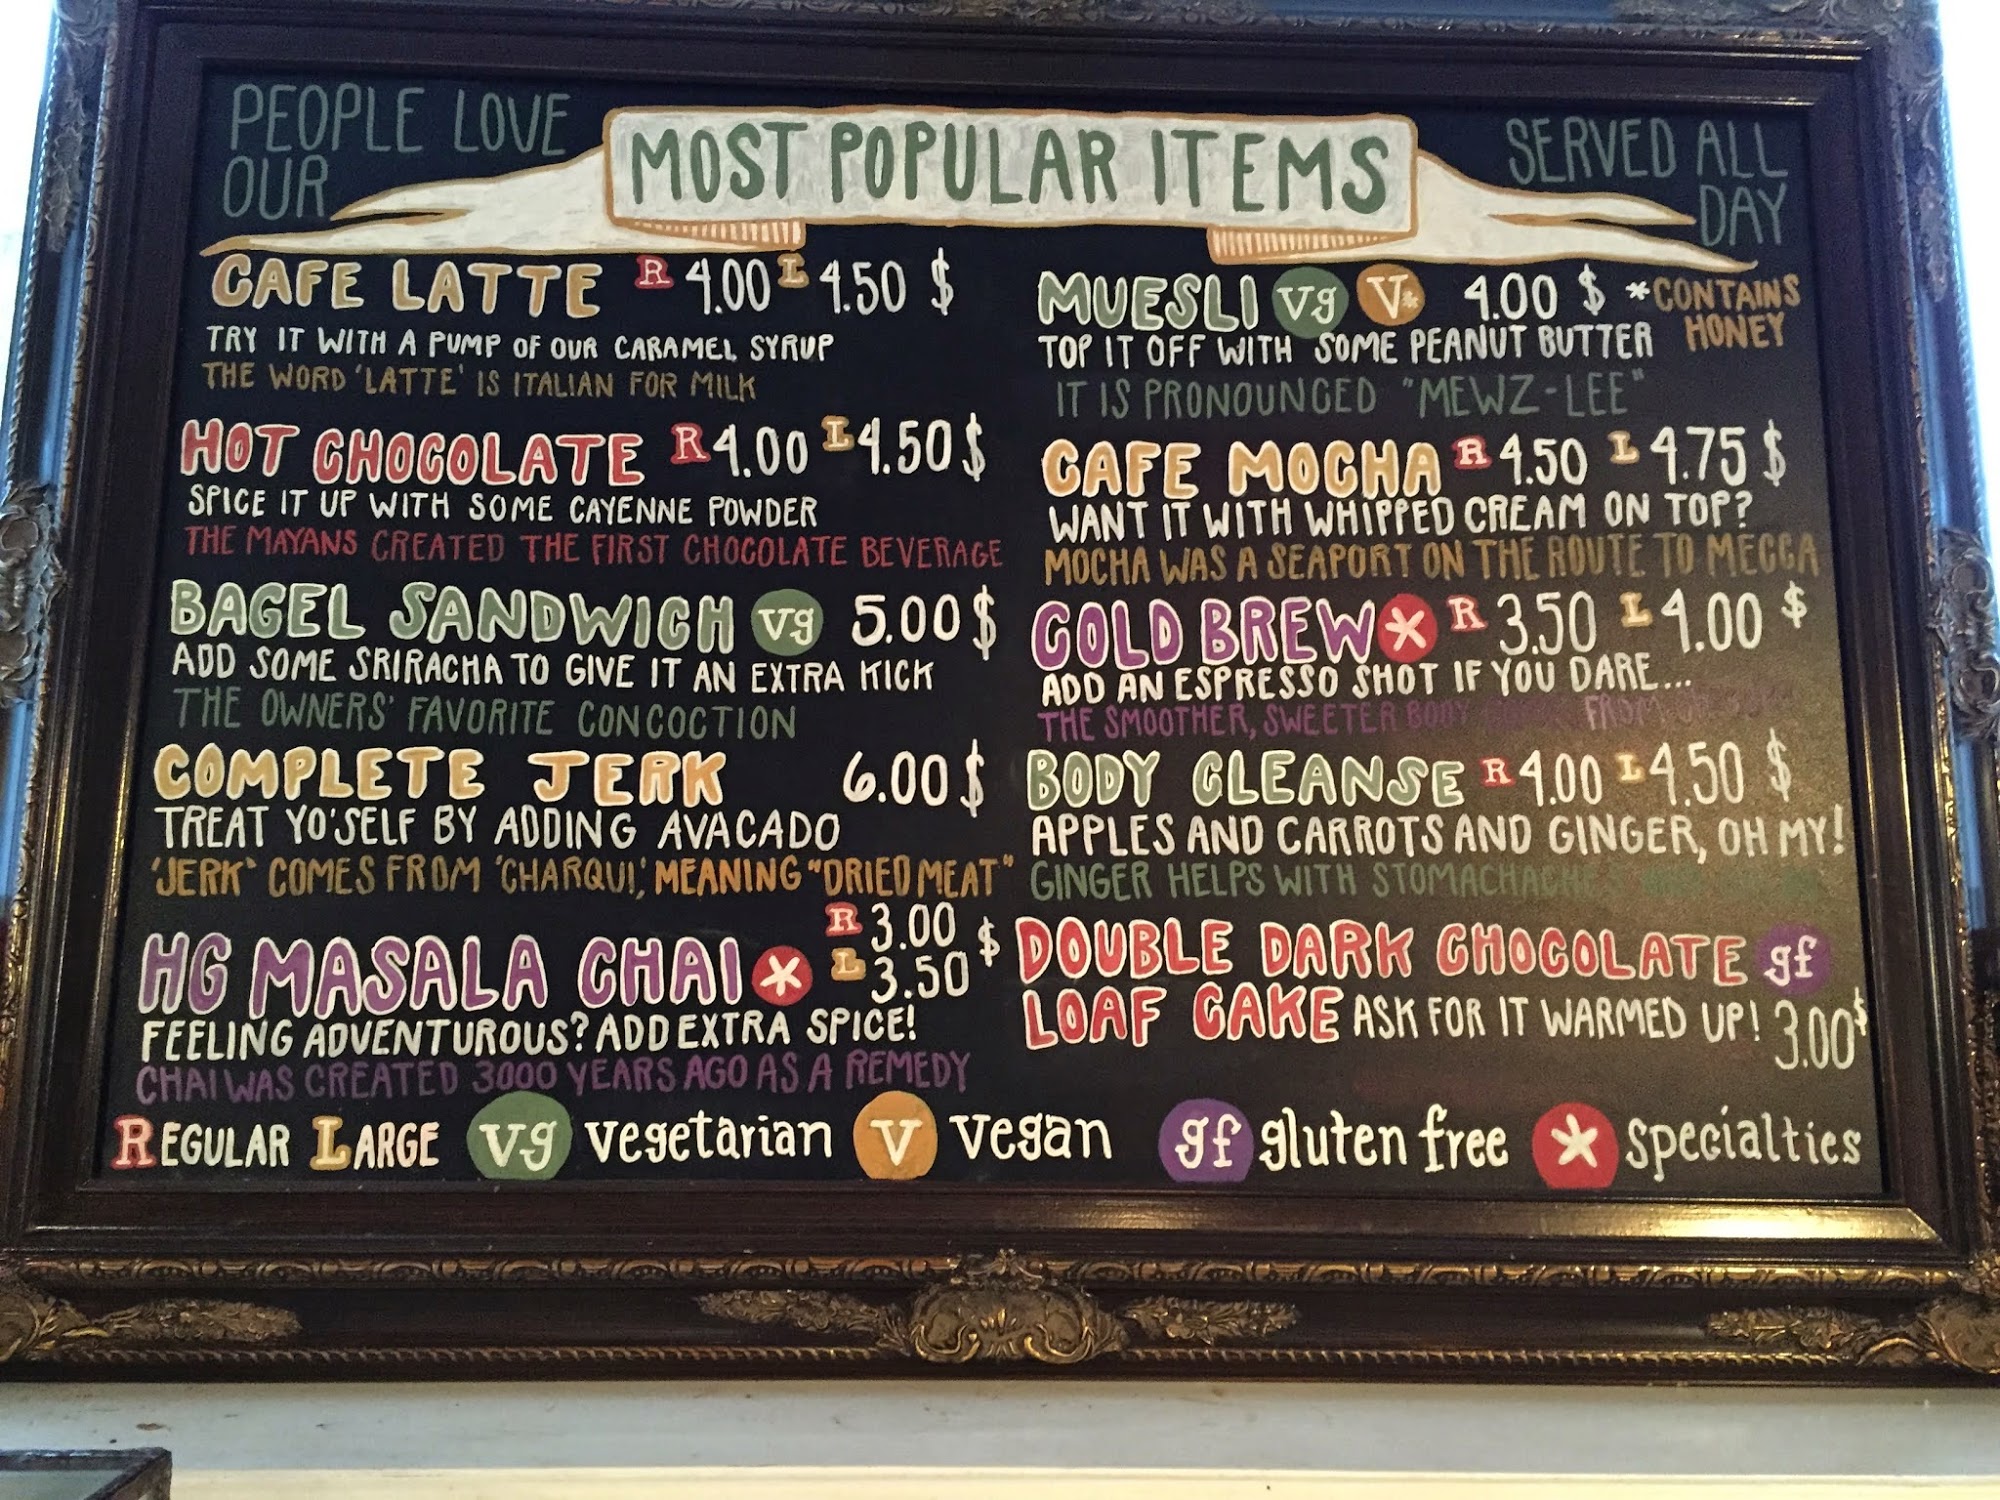 PEOPLE LOVE
OUR
MOST POPULAR ITEMS
SERVED ALL
DAY
CAFE LATTE R 4.00 L 4.50 $
TRY IT WITH A PUMP OF OUR CARAMEL SYRUP
THE WORD 'LATTE' IS ITALIAN FOR MILK
HOT CHOCOLATE R 4.00 L 4.50 $
SPICE IT UP WITH SOME CAYENNE POWDER
THE MAYANS CREATED THE FIRST CHOCOLATE BEVERAGE
BAGEL SANDWICH vg 5.00 $
ADD SOME SRIRACHA TO GIVE IT AN EXTRA KICK
THE OWNERS' FAVORITE CONCOCTION
COMPLETE JERK 6.00 $
TREAT YO'SELF BY ADDING AVACADO
'JERK' COMES FROM 'CHARQUI', MEANING "DRIED MEAT"
HG MASALA CHAI * R 3.00 L 3.50 $
FEELING ADVENTUROUS? ADD EXTRA SPICE!
CHAI WAS CREATED 3000 YEARS AGO AS A REMEDY
MUESLI vg V* 4.00 $ *CONTAINS
HONEY
TOP IT OFF WITH SOME PEANUT BUTTER
IT IS PRONOUNCED "MEWZ-LEE"
CAFE MOCHA R 4.50 L 4.75 $
WANT IT WITH WHIPPED CREAM ON TOP?
MOCHA WAS A SEAPORT ON THE ROUTE TO MECCA
COLD BREW * R 3.50 L 4.00 $
ADD AN ESPRESSO SHOT IF YOU DARE...
THE SMOOTHER, SWEETER BODY FROM
BODY CLEANSE R 4.00 L 4.50 $
APPLES AND CARROTS AND GINGER, OH MY!
GINGER HELPS WITH STOMACHACHES
DOUBLE DARK CHOCOLATE gf
LOAF CAKE ASK FOR IT WARMED UP! 3.00 $
REGULAR LARGE vg vegetarian V vegan gf gluten free * specialties